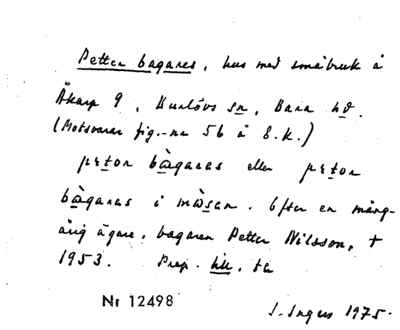 Petter bagares, hus med småbruk å
Åkarp 9, Burlövs sn, Bara hd.
(Motsvarar fig.-nr 56 å E.k.)
pɛtər bàgaras eller pɛtər
bàgaras i màsan. Efter en mång-
årig ägare, bagaren Petter Nilsson, †
1953. Prep. till, ta
Nr 12498
S. Ingers 1975.